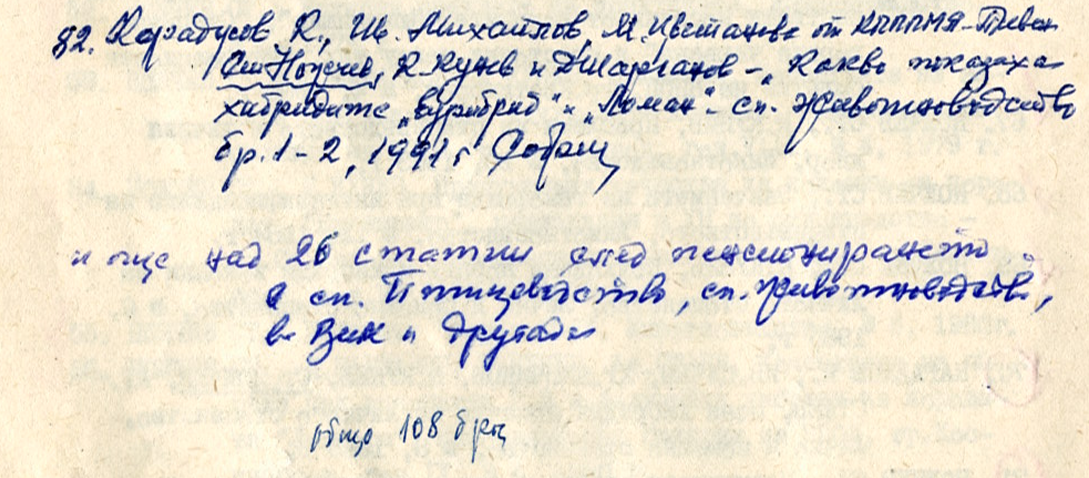 82. Карадусов К., Ив. Михайлов, М. Цветанова от Плевен
Ст. Нойчев, К. Кунев и Д. Шарганов – „Какво показаха
хибридите „Еурибрид" и „Ломан" – сп. Животновъдство
бр. 1-2, 1991 г. София
и още над 26 статии след пенсионирането
в сп. Птицевъдство, сп. Животновъдство,
в-к и другаде
общо 108 броя